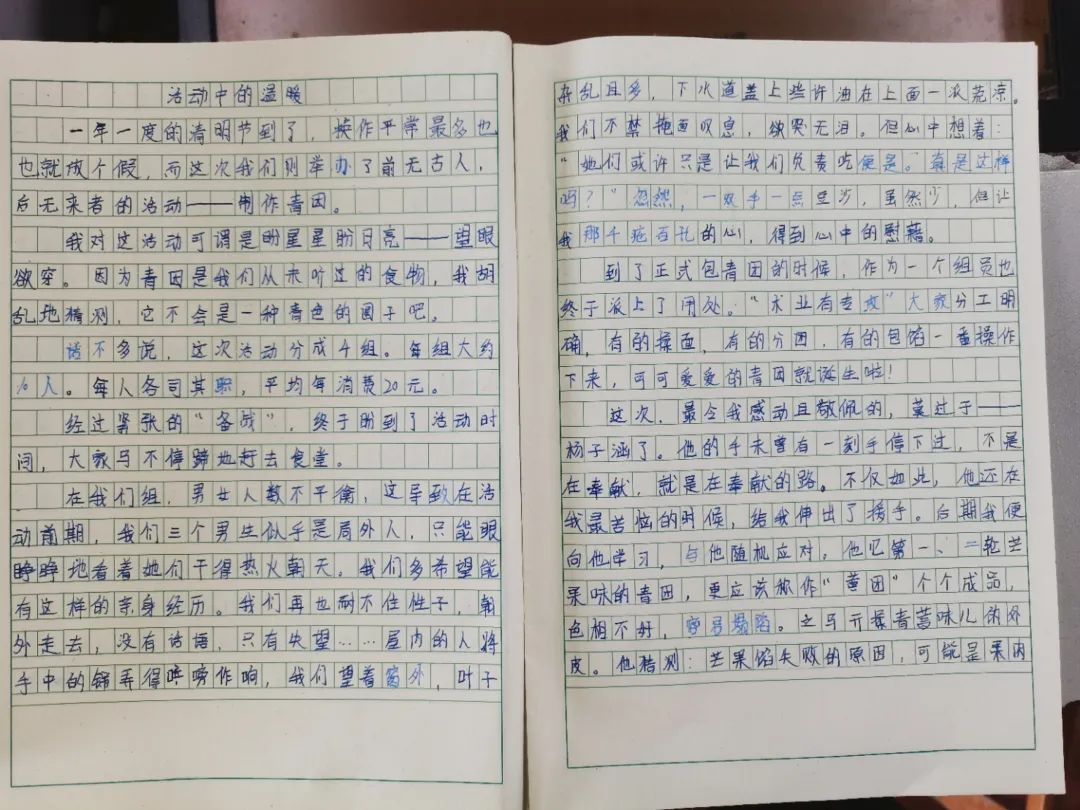 活动中的温暖
一年一度的清明节到了，换作平常最多也
也就放个假，而这次我们则举办了前无古人，
后无来者的活动——制作青团。
我对这活动可谓是盼星星盼月亮——望眼
欲穿。因为青团是我们从未听过的食物，我胡
乱地猜测，它不会是一种青色的团子吧。
话不多说，这次活动分成4组。每组大约
10人。每人各司其职，平均每消费20元。
经过紧张的“备战”，终于盼到了活动时
间，大家马不停蹄地赶去食堂。
在我们组，男女人数不平衡，这导致在活
动前期，我们三个男生似乎是局外人，只能眼
睁睁地看着她们干得热火朝天。我们多希望能
有这样的亲身经历。我们再也耐不住性子，朝
外走去，没有话语，只有失望……屋内的人将
手中的锅弄得哐啷作响，我们望着窗外，叶子
杂乱且多，下水道盖上些许油在上面一派荒凉。
我们不禁掩面叹息，欲哭无泪。但心中想着：
“她们或许只是让我们负责吃便是。真是这样
吗？”忽然，一双手一点豆沙，虽然少，但让
我那千疮百孔的心，得到心中的慰藉。
到了正式包青团的时候，作为一个组员也
终于派上了用处。“术业有专攻”大家分工明
确，有的揉面，有的分团，有的包馅一番操作
下来，可可爱爱的青团就诞生啦！
这次，最令我感动且敬佩的，莫过于——
杨子涵了。他的手未曾有一刻手停下过，不是
在奉献，就是在奉献的路。不仅如此，他还在
我最苦恼的时候，给我伸出了援手。后期我便
向他学习，与他随机应对。他忆第一、二轮芒
果味的青团，更应该称作“黄团”个个成品，
色相不好，塌陷。之马开揉青营味儿的外
皮。他猜测：芒果馅失败的原因，可能是果肉